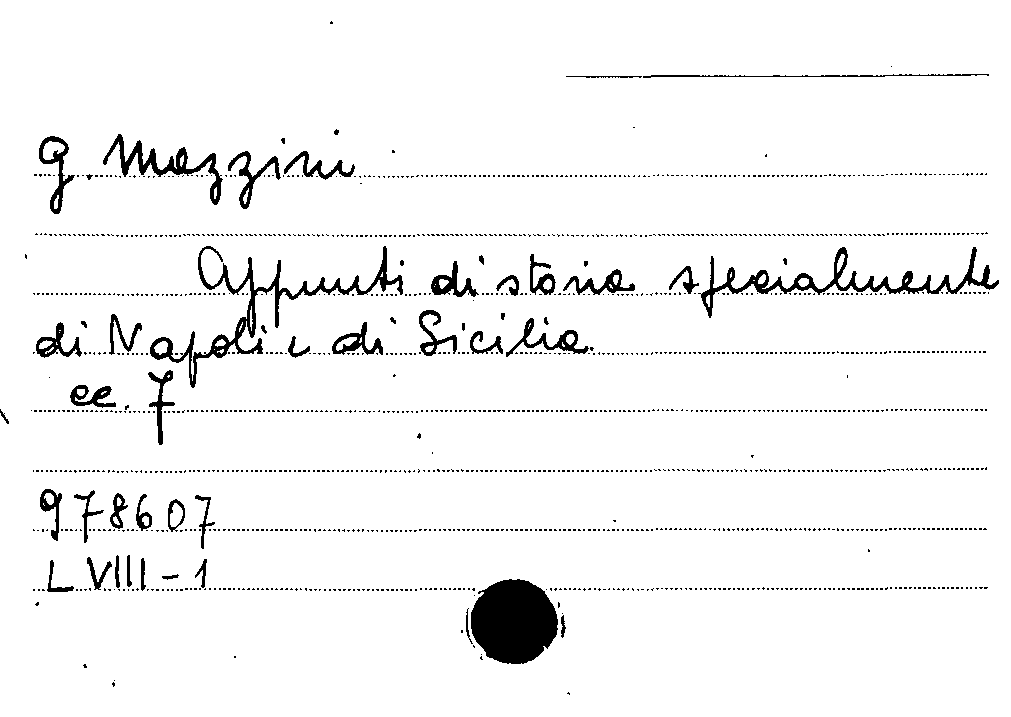 G. Mazzini
Appunti di storia specialmente
di Napoli e di Sicilia.
cc. 7
978607
L VIII - 1